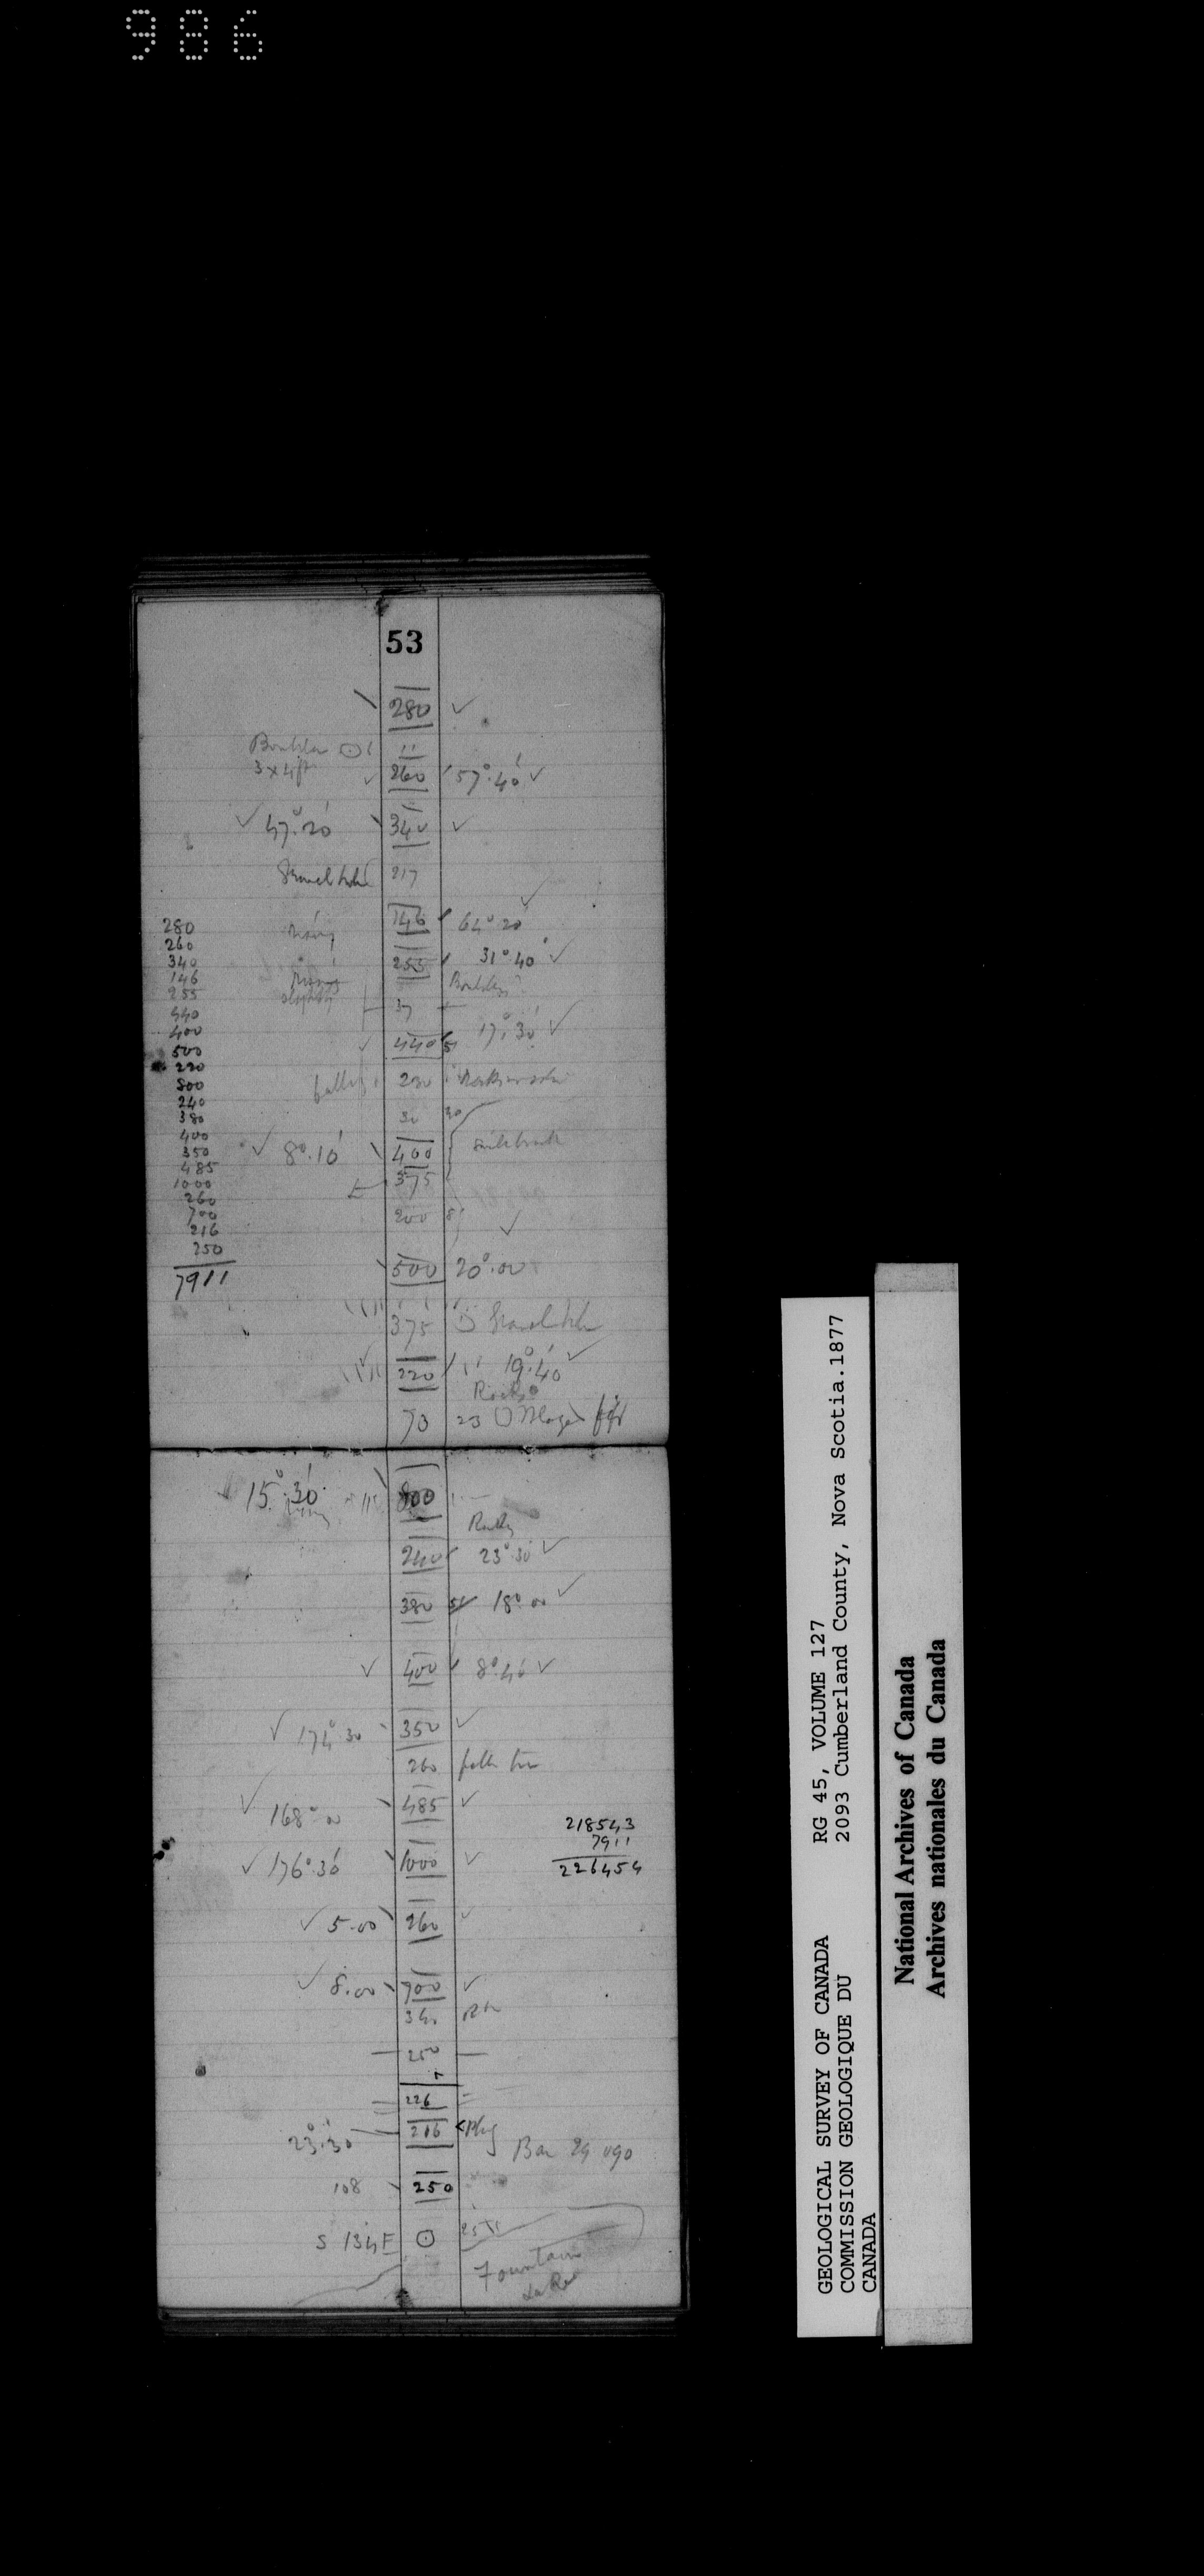 986
53
280 ✓
Boulder ⊙ 11
3 x 4 ft ✓ 260 57°.40' ✓
✓ 47°.20' 340 ✓
217
✓
146 64° 20'
255 31°.40' ✓
Boulders
37
✓ 440 51 17°.30' ✓
230
30 30
✓ 8°.10' 400
375
200 8
✓
500 20°.00
375
✓ 220 19°.40' ✓
Rocky
73 23
280
260
340
146
255
440
400
500
220
800
240
380
400
350
485
1000
260
700
216
250
7911
15°.30' 800
Rocky
240 23°.30' ✓
380 18°.00 ✓
✓ 400 8°.40' ✓
✓ 174°.30 350 ✓
260
✓ 168°.00 485 ✓
✓ 176°.30' 1000 ✓
218543
7911
226454
✓ 5.00 260 ✓
✓ 8.00 700 ✓
340
250
226
23°.30' 216
Bar 29 090
108 250
S 134 E ⊙
Fountain
Lake
GEOLOGICAL SURVEY OF CANADA RG 45, VOLUME 127
COMMISSION GEOLOGIQUE DU 2093 Cumberland County, Nova Scotia.1877
CANADA
National Archives of Canada
Archives nationales du Canada